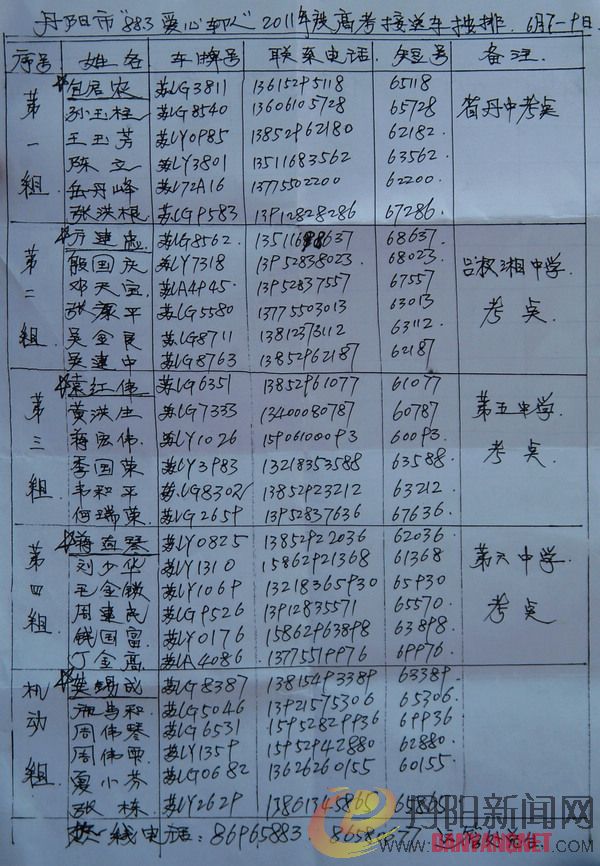 丹阳市"88.3爱心车队"2011年度高考接送车按排. 6月7-9日.
序号 姓名 车牌号 联系电话 短号 备注.
第一组 包居农 苏LG3811 13615295118 65118 省丹中考点
孙玉柱 苏LG8540 13606105728 65728
王玉芳 苏LY0985 13852962180 62182.
陈立 苏LY3801 13511683562 63562
岳丹峰 苏L72A16 13775502200 62200.
张洪根 苏LG9583 13912828286 67286.
第二组 方建忠 苏LG8562. 68637 吕叔湘中学考点
殷国庆 苏LY7318 13952838023 68023
邓天宝 苏LA4945 13952837557 67557
张 平 苏LG5580 13775503013 63013
吴金良 苏LG8711 63112
吴建中 苏LG8763 13852962187 62187
第三组 袁红伟 苏LG6351 13852961077 61077 第五中学.考点
黄洪生 苏LG7333 13400080787 60787
蒋宏伟 苏LY1026 15906100093 60093.
季国荣 苏LY3983 13218353588 63588
韦和平 苏LG8302 13852923212 63212
何瑞荣 苏LG2659 13952837636 67636
第四组 蒋 琴 苏LY0825 13852922036 62036 第六中学.考点
刘少华 苏LY1310 15862921368 61368
王金锁 苏LY1069 13218365930 65930
周建民 苏LG9526 13912835571 65570
钱国富 苏LY0176 15862963898 63898.
丁金高 苏LA4086 13775519976 69976
机动组 吴锡成 苏LG8387 13815493389 63389
马和 苏LG5046 13921575306 65306
周伟琴 苏LG6531 15952829936 69936
周伟 苏LY1359 15952942880 62880
夏小芬 苏LG0682 13626260155 60155
张栋 苏LY2629 13861345865 65865
热线电话:86965883
丹阳新闻网
DANYANGNET.